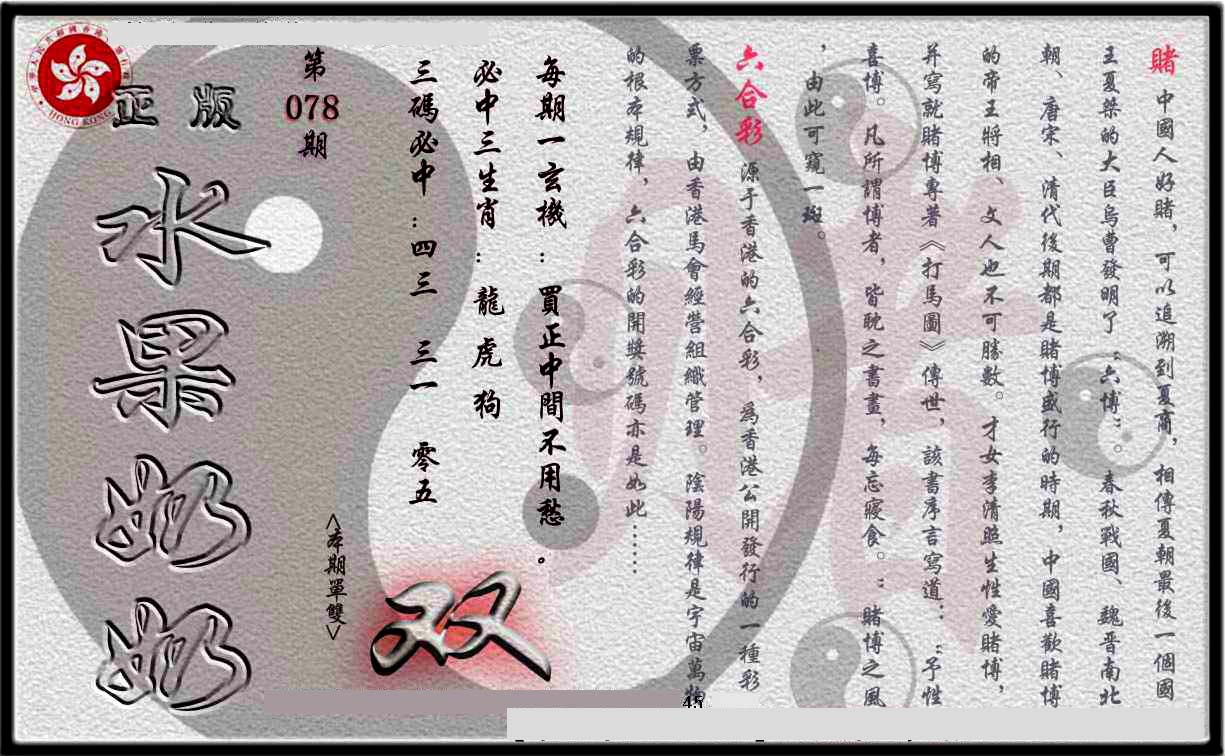 賭中國人好賭，可以追溯到夏商，相傳夏朝最後一個國
王夏桀的大臣烏曹發明了“六博”。春秋戰國、魏晋南北
朝、唐宋、清代後期都是賭博盛行的時期，中國喜歡賭博
的帝王將相、文人也不可勝數。才女李清照生性愛賭博，
并寫就賭博專著《打馬圖》傳世，該書序言寫道：“予性
喜博。凡所謂博者，皆耽之書畫，每忘寢食。”賭博之風
，由此可窺一斑。
六合彩 源于香港的六合彩，爲香港公開發行的一種彩
票方式，由香港馬會經營組織管理。陰陽規律是宇宙萬物
的根本規律，六合彩的開獎號碼亦是如此……
每期一玄機：買正中間不用愁。
必中三生肖：龍 虎 狗
三碼必中：四三 三一 零五
第
078
期
<本期單雙>
双
正版
水果奶奶
HONG KONG
45